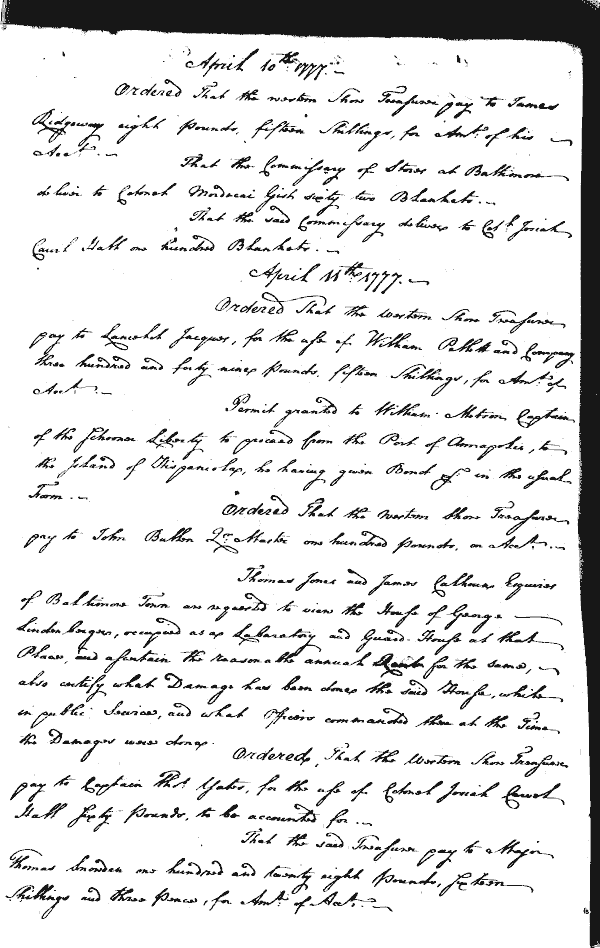 April 10th 1777.
Ordered That the western Shore Treasurer pay to James
Ridgeway eight pounds, fifteen Shillings, for Amt. of his
Acct.
That the Commissary of Stores at Baltimore
deliver to Colonel Mordecai Gist sixty two Blankets.
That the said Commissary deliver to Col. Josiah
Carvel Hall one hundred Blankets.
April 11th 1777.
Ordered That the western Shore Treasurer
pay to Lancelot Jacques, for the use of William and Company
three hundred and forty nine pounds, fifteen Shillings, for Amt. of
Acct.
Permit granted to William Captain
of the Schooner Liberty to proceed from the Port of Annapolis, to
the Island of Hispaniola, he having given Bond &c in the usual
Form.
Ordered That the western Shore Treasurer
pay to John Qr. Master one hundred pounds, on Acct.
Thomas Jones and James Calhoun Esquires
of Baltimore Town are requested to view the House of George
Lindenberger, occupied as a Labaratory and Guard House at that
Place, and ascertain the reasonable annual Rent for the same,
also certify what Damage has been done the said House, while
in public Service, and what Officers commanded there at the Time
the Damages were done.
Ordered, That the Western Shore Treasurer
pay to Captain Thos. Yates, for the use of Colonel Josiah Carvel
Hall Sixty Pounds, to be accounted for.
That the said Treasurer pay to Major
Thomas Snowden one hundred and twenty eight pounds, sixteen
Shillings and three pence, for Amt. of Act.